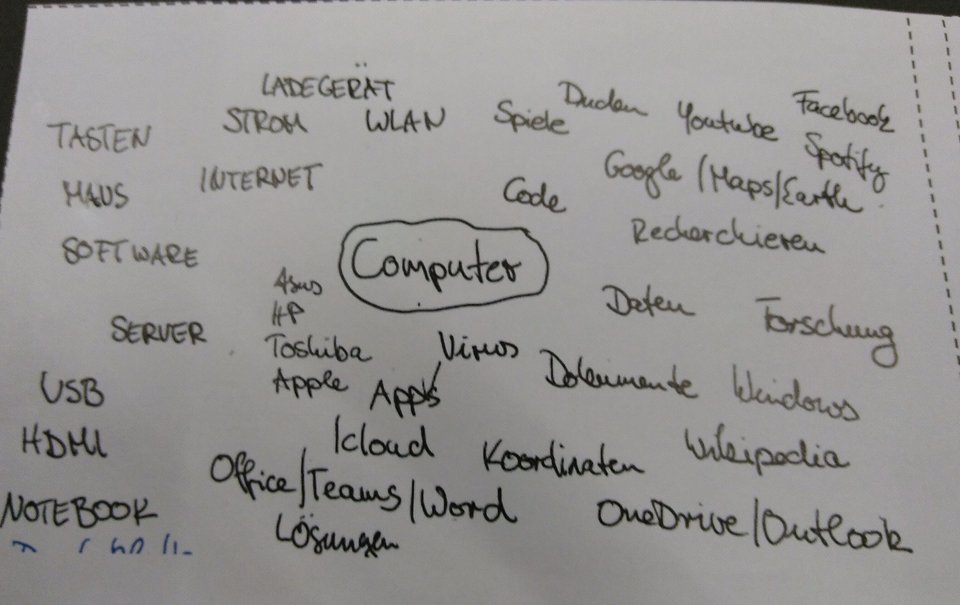 LADEGERÄT
Duden
Facebook
TASTEN STROM WLAN Spiele Youtube
Spotify
MAUS INTERNET Code Google/Maps/Earth
Recherchieren
SOFTWARE Computer
Asus
HP
Daten Forschung
SERVER Toshiba Virus
USB Apple Apps Dokumente Windows
HDMI Icloud Koordinaten Wikipedia
Office/Teams/Word
NOTEBOOK OneDrive/Outlook
Lösungen